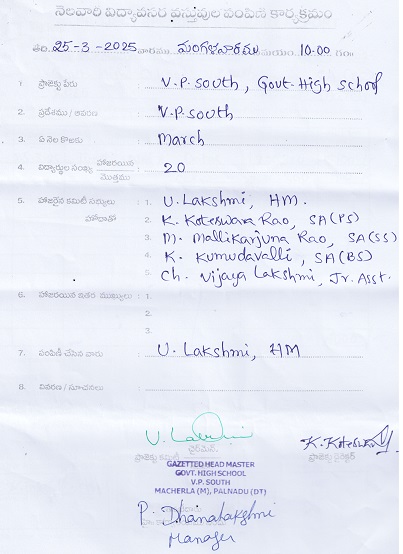 నెలవారి విద్యావనర వస్తువుల పంపిణీ కార్యక్రమం
తేది: 25-3-2025 వారము మంగళవారము సమయం 10.00 గం॥
1 ప్రాజెక్టు పేరు V.P. South, Govt. High School
2. ప్రదేశము / ఆవరణ V.P. South
3. ఏ నెల కొఱకు March
4. విద్యార్థుల సంఖ్య హాజరయిన మొత్తము 20
5. హాజరైన కమిటీ సభ్యులు 1. U. Lakshmi, HM.
హోదాతో 2. K. Koteswara Rao, SA(PS)
3. M. Mallikarjuna Rao, SA(SS)
4. K. Kumudavalli, SA(BS)
5. Ch. Vijaya Lakshmi, Jr. Asst.
6. హాజరయిన ఇతర ముఖ్యులు : 1.
2.
3.
7. పంపిణీ చేసిన వారు U. Lakshmi, HM
8. వివరణ / సూచనలు
K. Koteswara
చైర్మన్
ప్రాజెక్టు కమిటీ ప్రాజెక్టు డైరెక్టర్
GAZETTED HEAD MASTER
GOVT. HIGH SCHOOL
V.P. SOUTH
MACHERLA (M), PALNADU (DT)
P. Dhanalakshmi
Manager